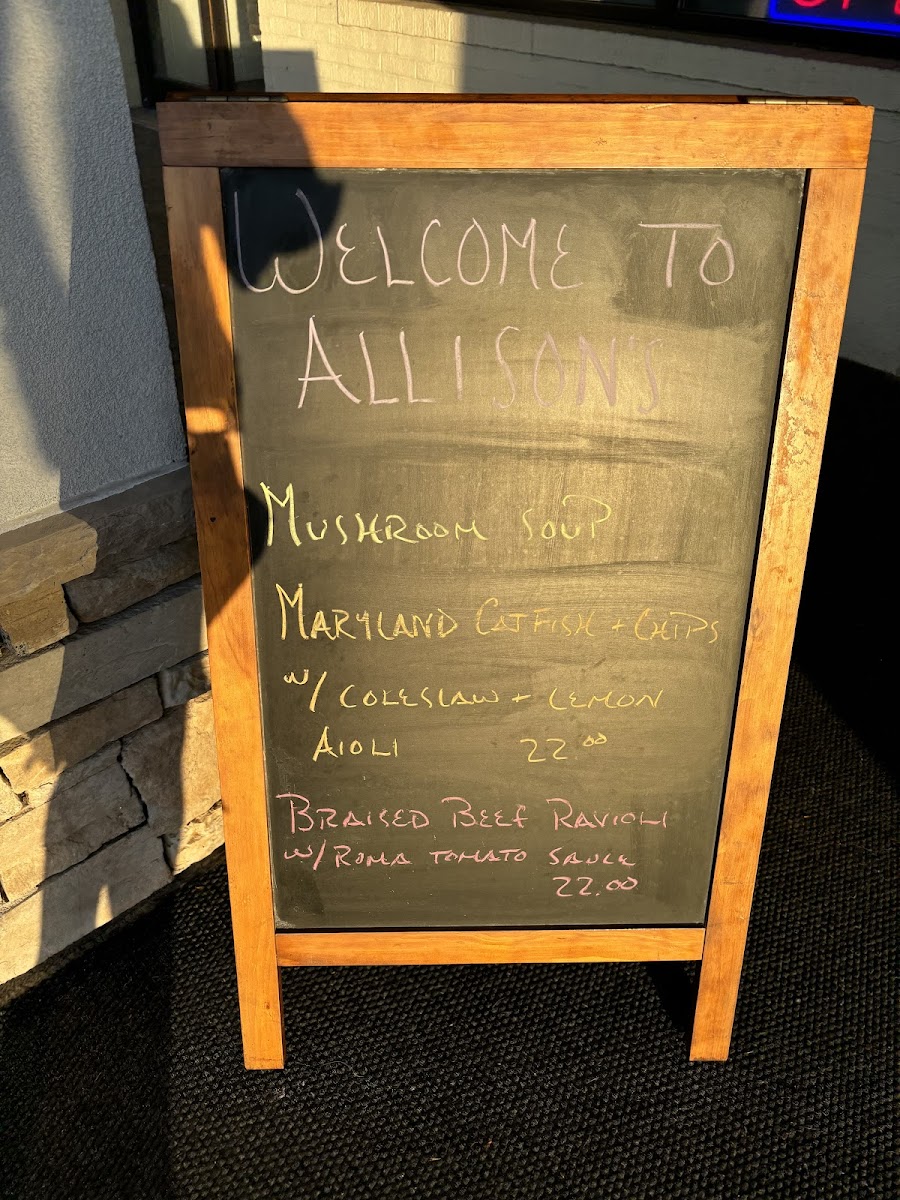 WELCOME TO
ALLISON'S
MUSHROOM SOUP
MARYLAND CATFISH + CHIPS
W/ COLESLAW + LEMON
AIOLI 22.00
BRAISED BEEF RAVIOLI
W/ ROMA TOMATO SAUCE
22.00